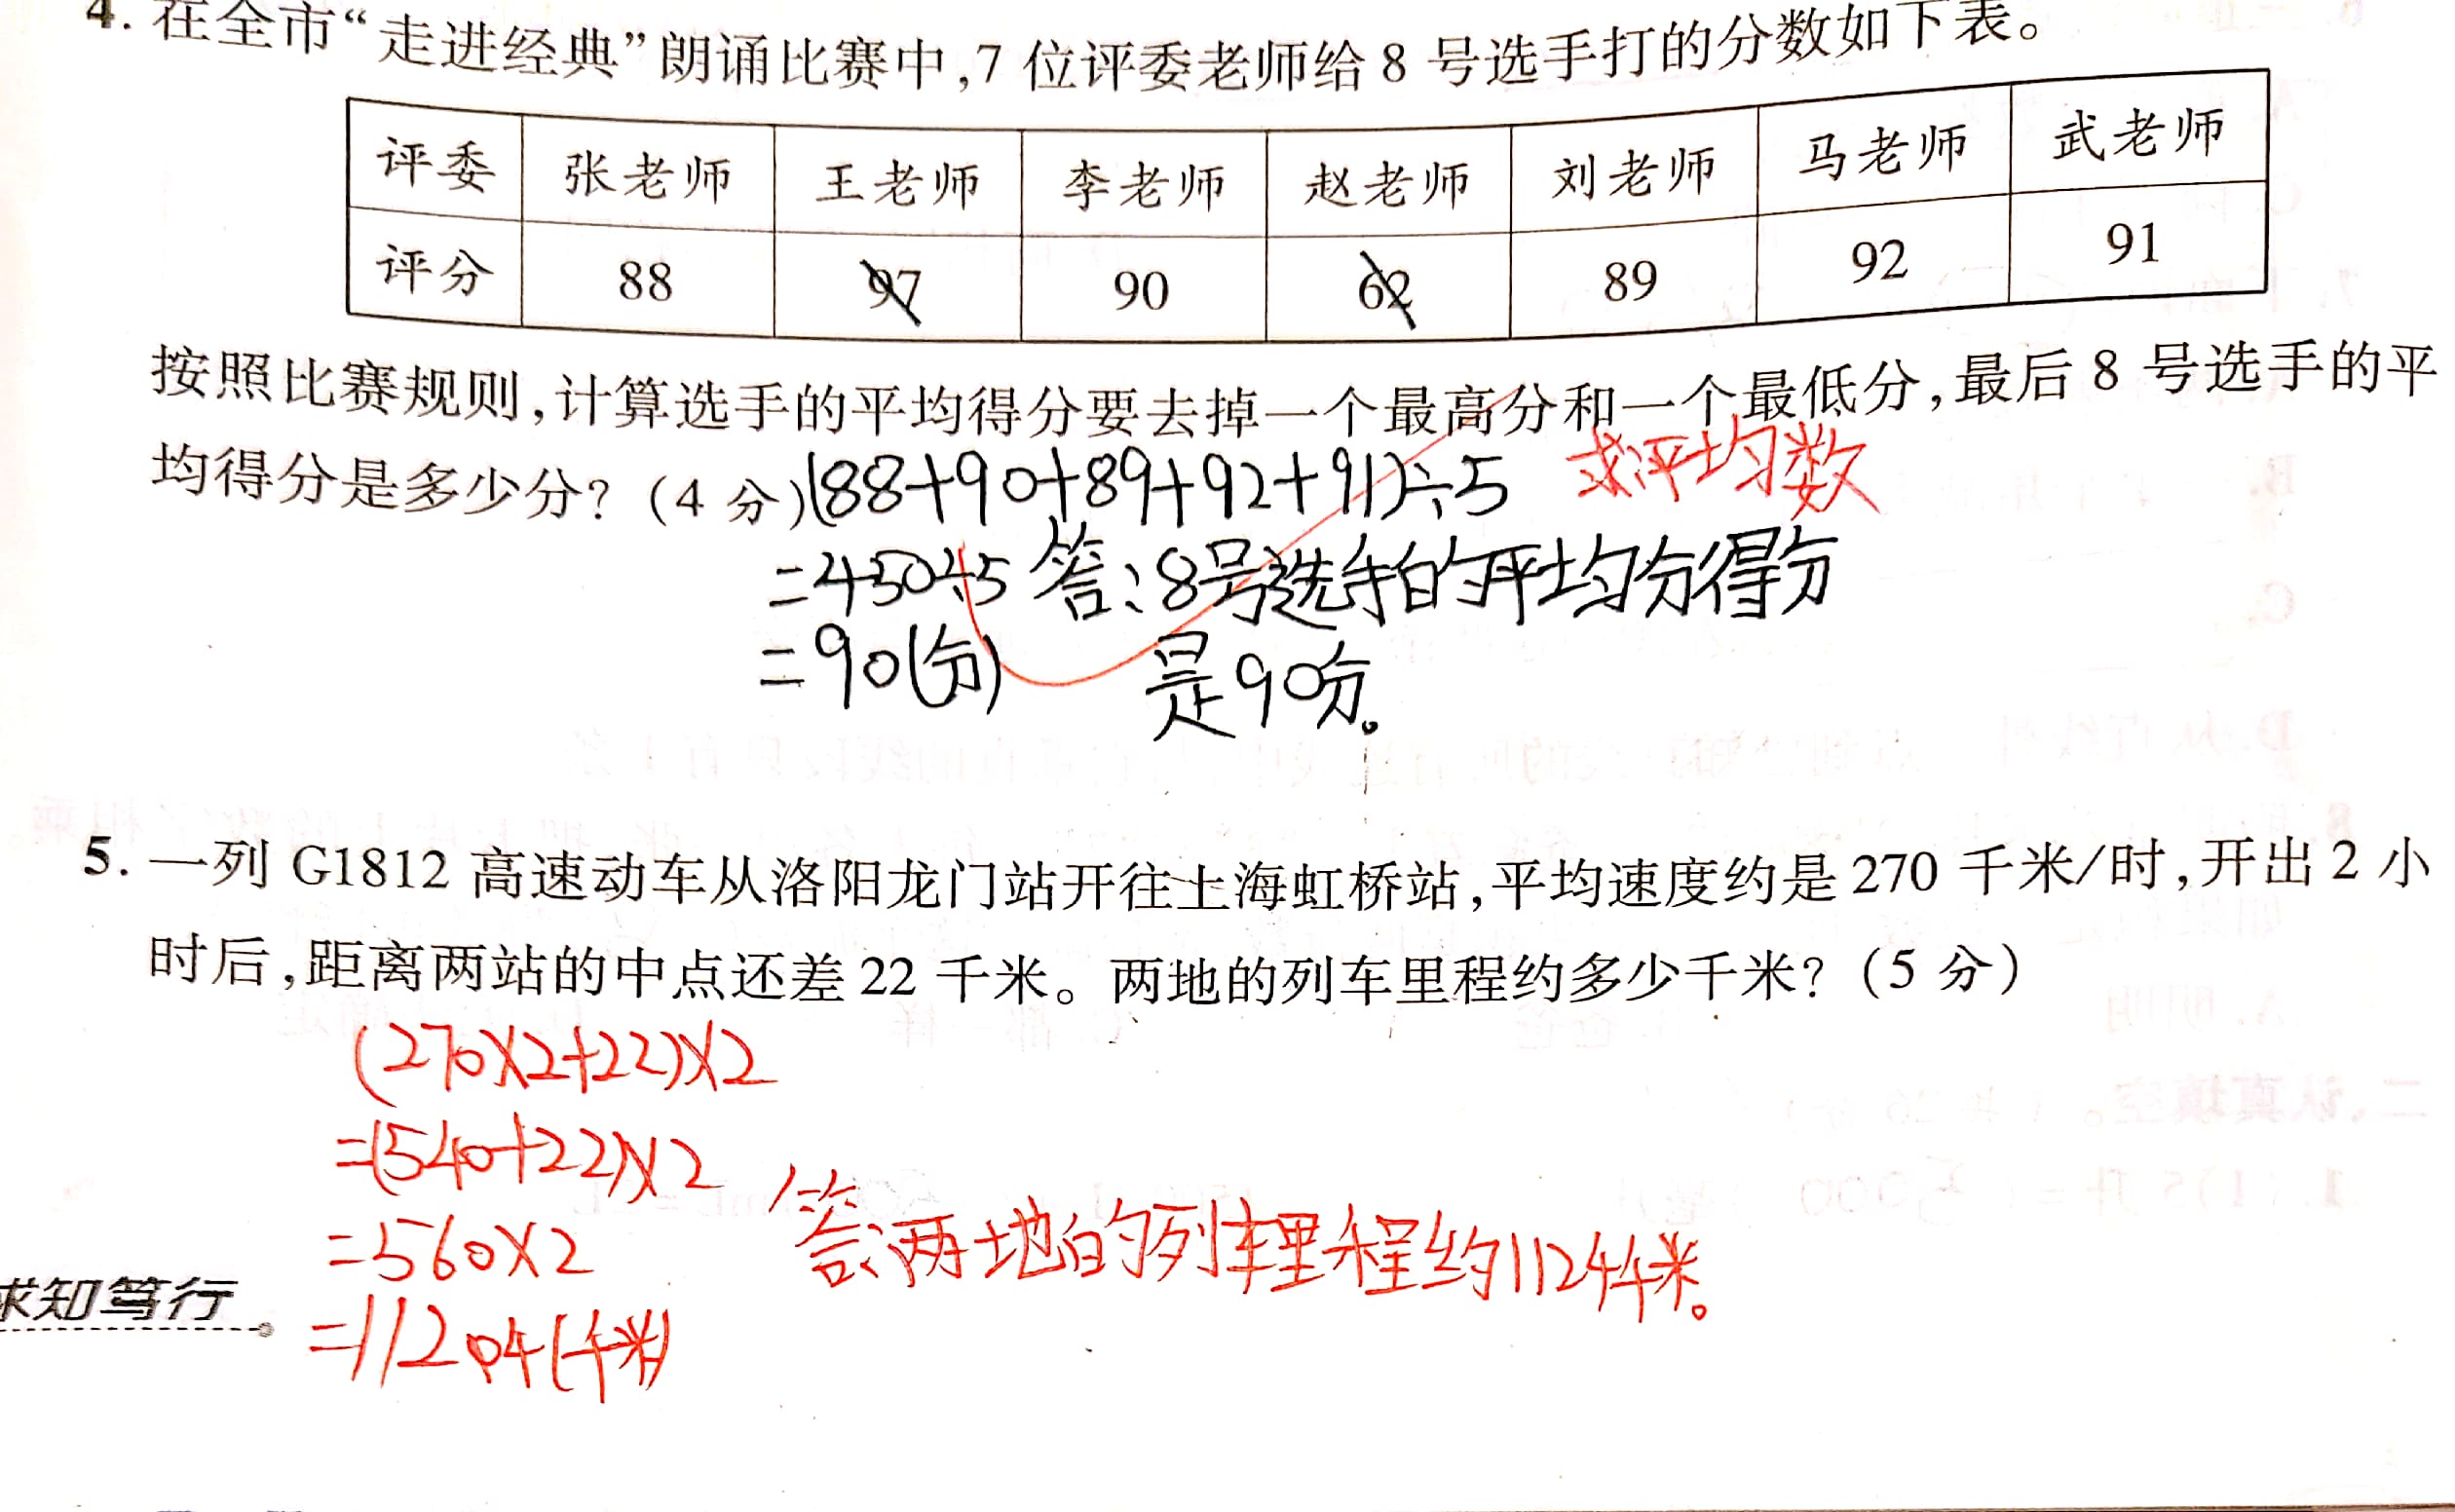 4. 在全市“走进经典”朗诵比赛中,7 位评委老师给 8 号选手打的分数如下表。
评委 张老师 王老师 李老师 赵老师 刘老师 马老师 武老师
评分 88 97 90 62 89 92 91
按照比赛规则,计算选手的平均得分要去掉一个最高分和一个最低分,最后 8 号选手的平
均得分是多少分? (4 分) (88+90+89+92+91)÷5 求评均数
=450÷5 答:8号选手的平均分得分
=90(分) 是90分。
5. 一列 G1812 高速动车从洛阳龙门站开往上海虹桥站,平均速度约是 270 千米/时,开出 2 小
时后,距离两站的中点还差 22 千米。两地的列车里程约多少千米? (5 分)
(270×2+22)×2
=(540+22)×2
=560×2 答:两地的列车里程约1124千米。
求知笃行
=1124(千米)